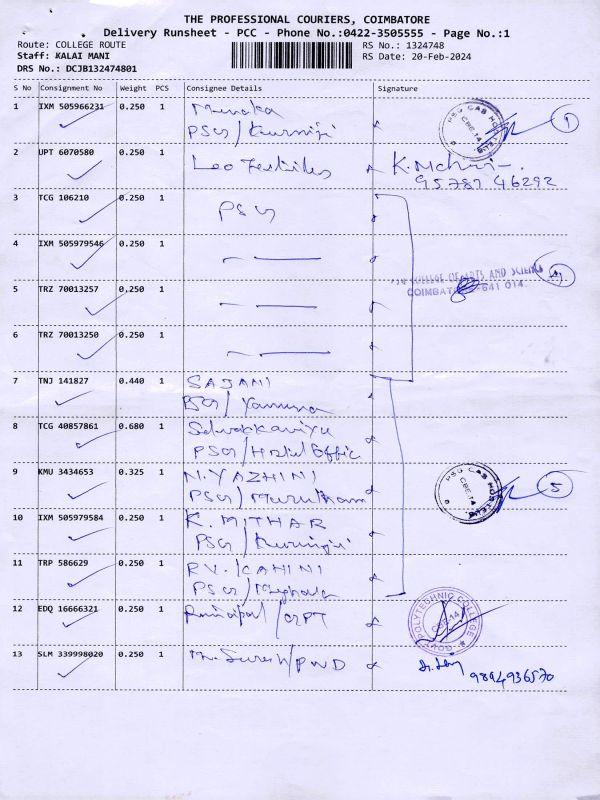 THE PROFESSIONAL COURIERS, COIMBATORE
Delivery Runsheet - PCC - Phone No.:0422-3505555 - Page No.:1
Route: COLLEGE ROUTE
RS No.: 1324748
Staff: KALAI MANI
RS Date: 20-Feb-2024
DRS No.: DCJB132474801
S No Consignment No Weight PCS Consignee Details Signature
1 IXM 505966231 0.250 1 Menaka
PSG / Kurinji
PSG CAS HOSTELS CBE-14
1
2 UPT 6070580 0.250 1 Leo
95787 46292
3 TCG 106210 0.250 1 PSG
4 IXM 505979546 0.250 1
PSG COLLEGE OF ARTS AND SCIENCE
COIMBATORE-641 014.
4
5 TRZ 70013257 0.250 1
6 TRZ 70013250 0.250 1
7 TNJ 141827 0.440 1 SAJANI
PSG / Yamuna
8 TCG 40857861 0.680 1
PSG / Hostel Office
9 KMU 3434653 0.325 1 N.YAZHINI
PSG /
PSG CAS HOSTELS CBE-14
5
10 IXM 505979584 0.250 1 K. MITHAR
PSG / Kurinji
11 TRP 586629 0.250 1
PSG /
12 EDQ 16666321 0.250 1 Principal / GPT
GOVT POLYTECHNIC COLLEGE CBE-14
13 SLM 339998020 0.250 1 Suresh / PWD
9894936570